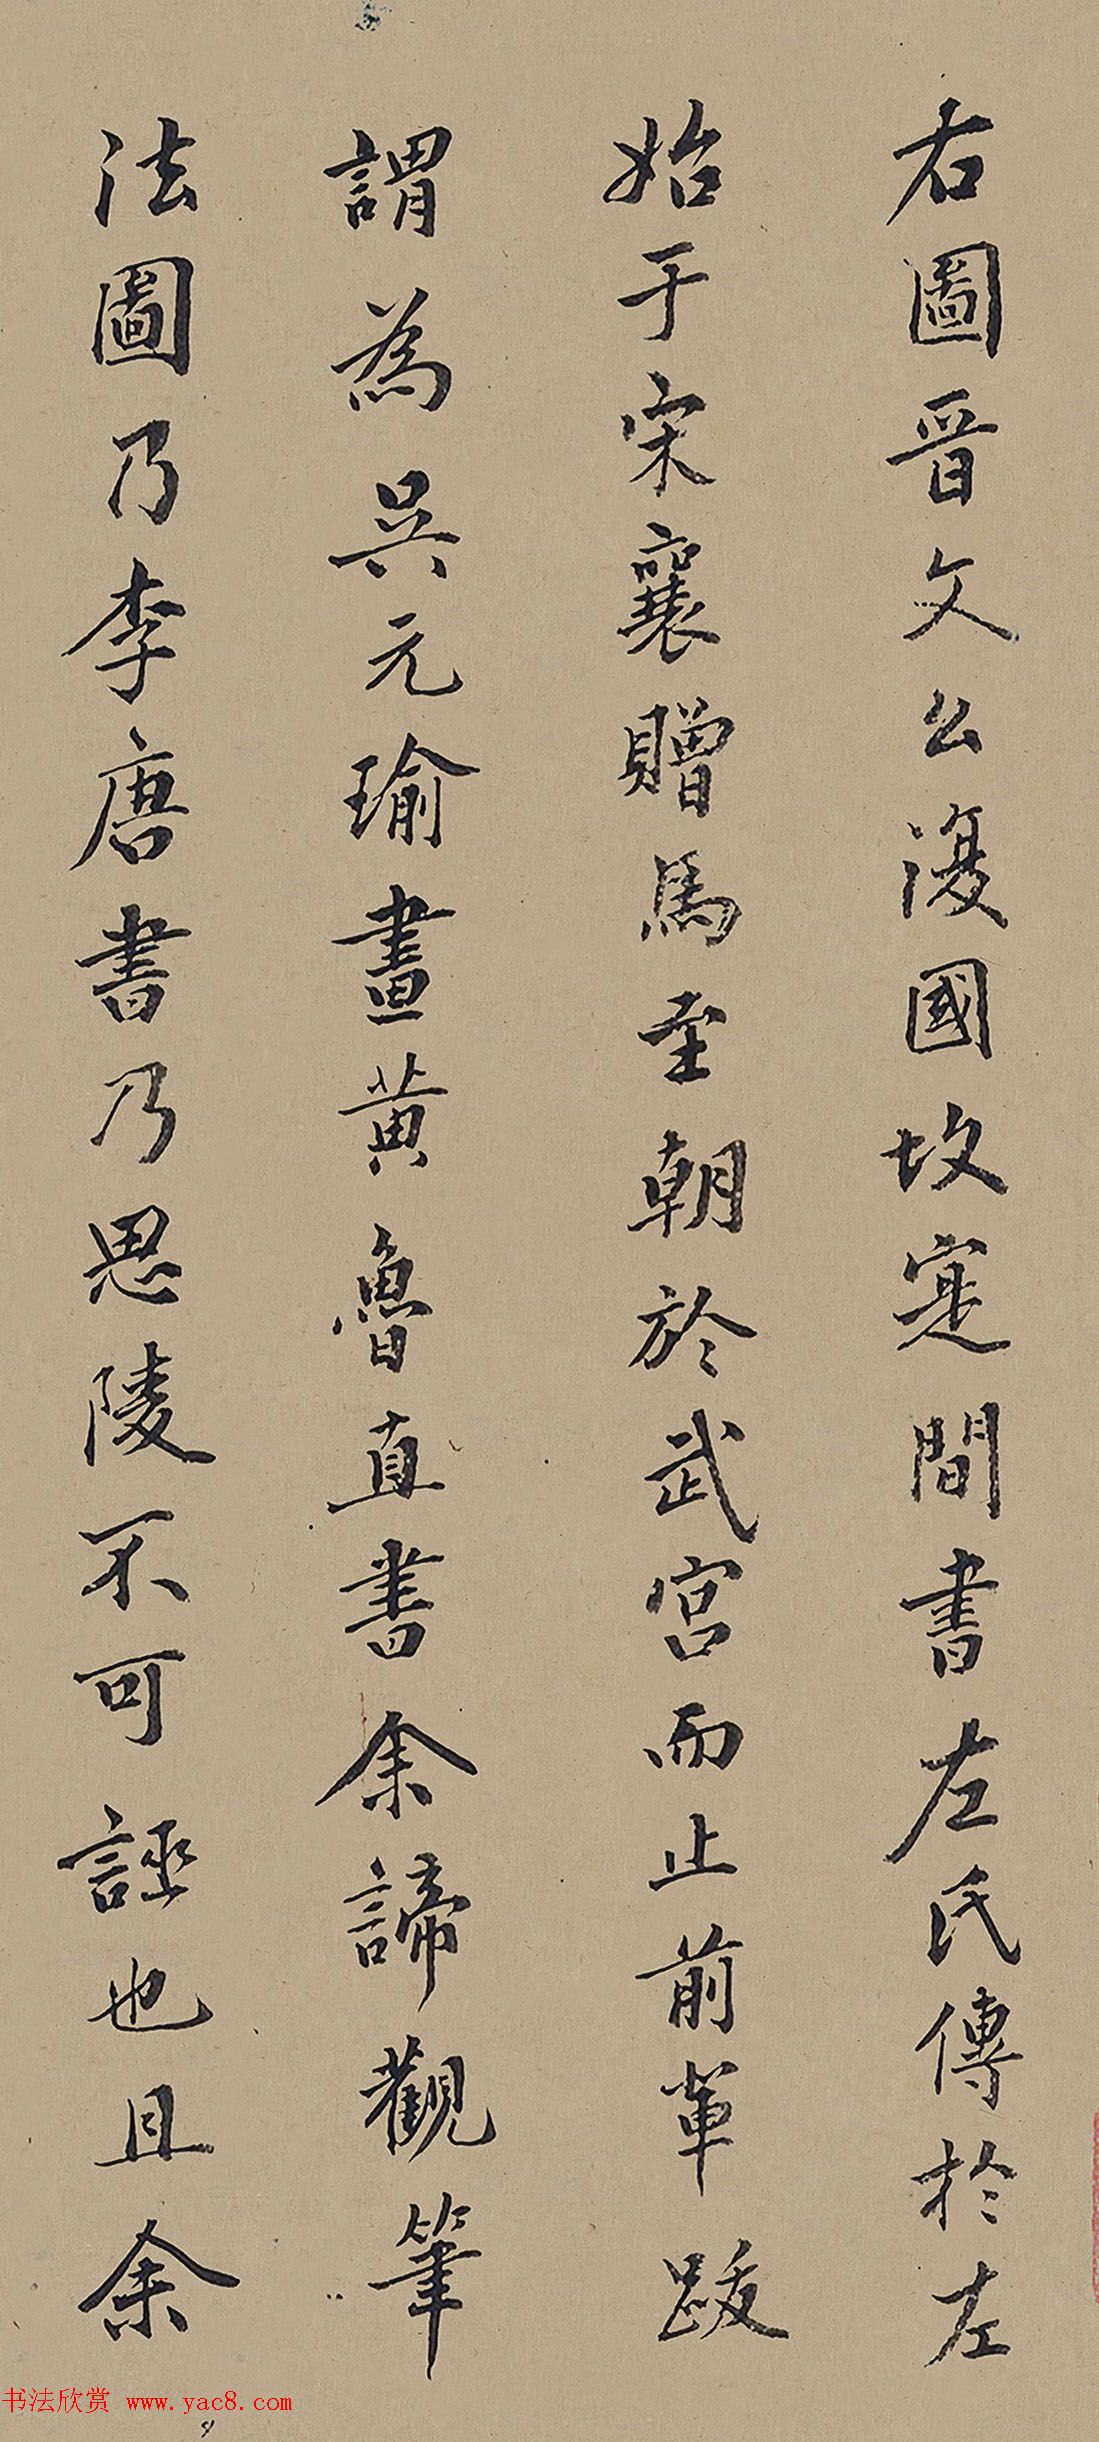 右圖晉文公復國故寔間書左氏傳於左
始于宋襄贈馬至朝於武宮而止前輩跋
謂為吳元瑜畫黃魯直書余諦觀筆
法圖乃李唐書乃思陵不可誣也且余
书法欣赏 www.yac8.com